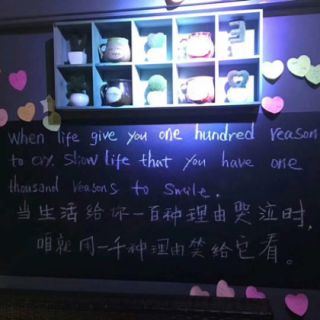 When life give you one hundred reason
to cry. Show life that you have one
thousand reasons to smile.
当生活给你一百种理由哭泣时,
咱就用一千种理由笑给它看。